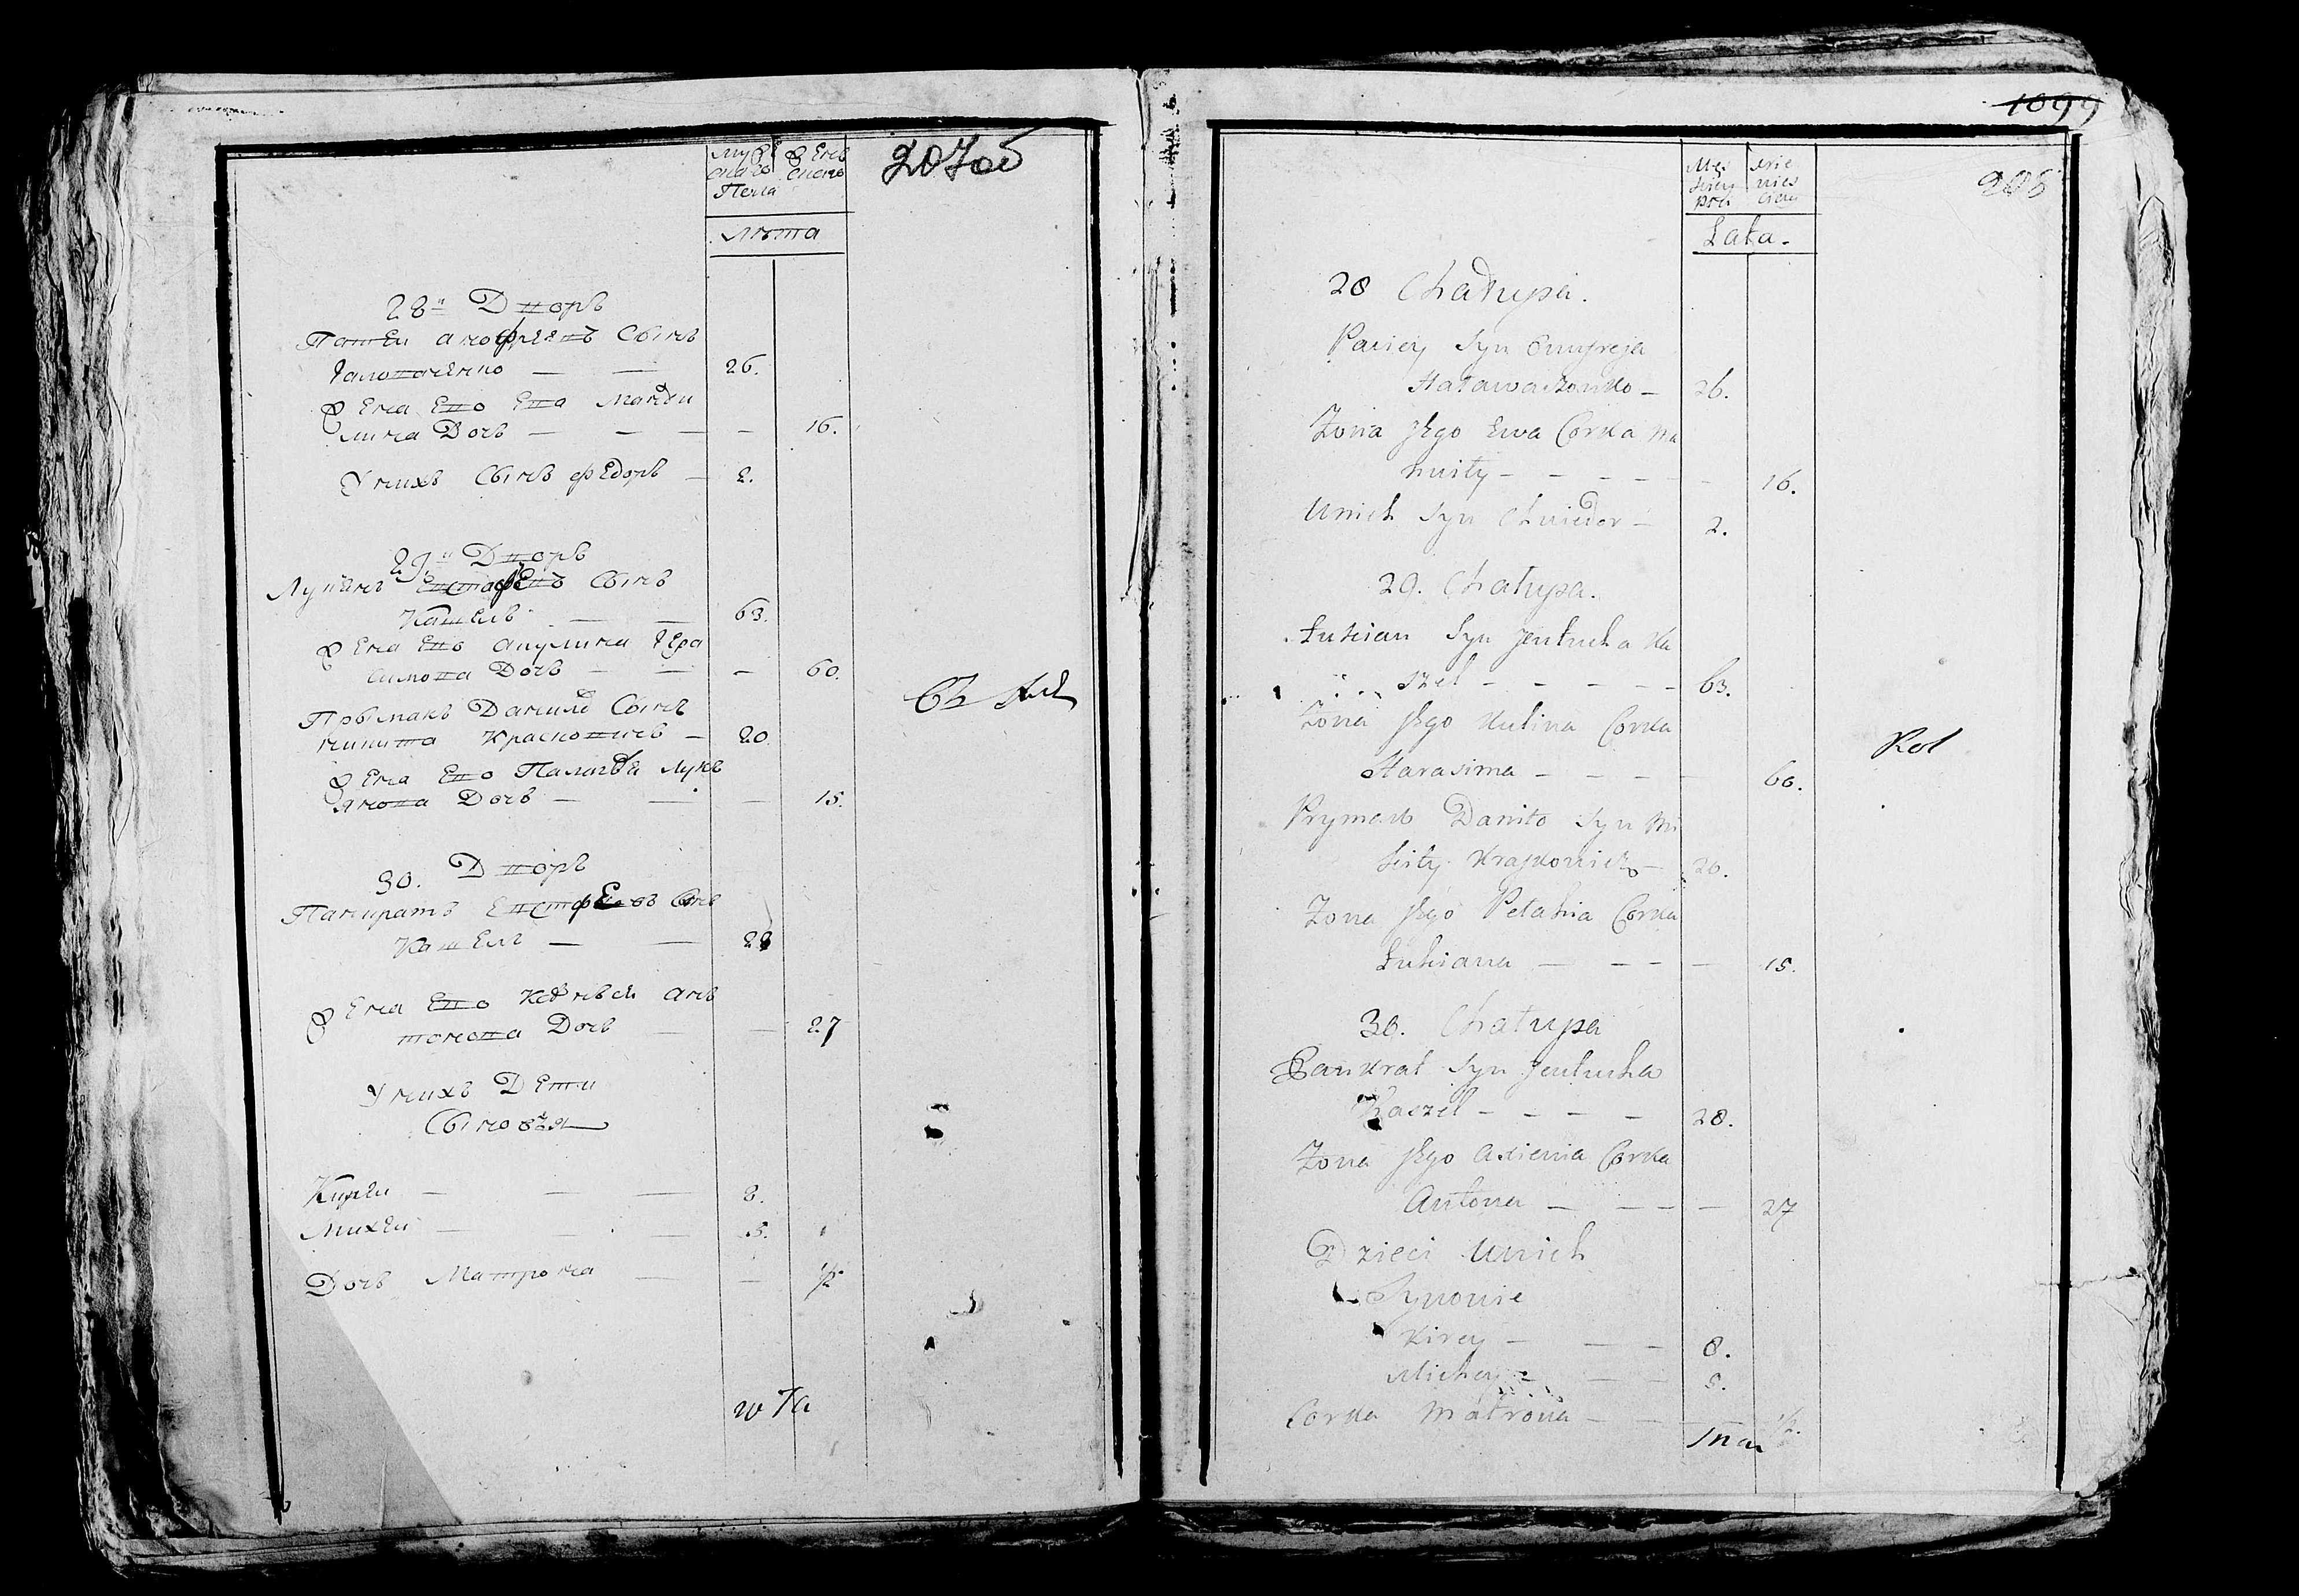 207об
Мужскаго Женскаго
Пола
Лѣта
28й Дворъ
Патей Анофреевъ Сынъ
Галовачёнко — — 26.
Жена Ево Ева Манои
лина Дочь — — — — 16.
У нихъ Сынъ Федоръ — 2.
29й Дворъ
Лукянъ Евстафевъ Сынъ
Кашель — — 63.
Жена Ево Акулина Гера
симова Дочь — — — 60.
Прымакъ Данило Сынъ
Никита — 20.
Жена Ево Лукь
янова Дочь — — — 15.
30. Дворъ
Панкратъ Евстафевъ Сынъ
Кашель — — 28
Жена Ево Ан
тонова Дочь — — 27
У нихъ Дети
Сыновья
Кирей — — — 8.
Михей — — — 5.
Дочь Матрона — — 1/2
1099
208
Męs kiey płci Żie nies kiey
Lata.
28 Chałupa.
Paciey Syn Onufreja
Haławaczonko — 26.
Żona Jego Ewa Corka Ma
nuiły — — — — — 16.
Unich Syn Chwiedor — 2.
29. Chałupa.
Łukian Syn Jeutucha Ka
szel — — — — — 63.
Żona Jego Kulina Corka
Harasima — — — — 60.
Prymak Daniło Syn Mi
kity — 20.
Żona Jego Pełahia Corka
Łukiana — — — — 15.
30. Chałupa
Pankrat Syn Jeutucha
Kaszel — — — — 28.
Żona Jego Axienia Corka
Antona — — — — 27
Dzieci Unich
Synowie
Kirey — — — 8.
Michey — — — 5.
Corka Matrona — — — 1/2.